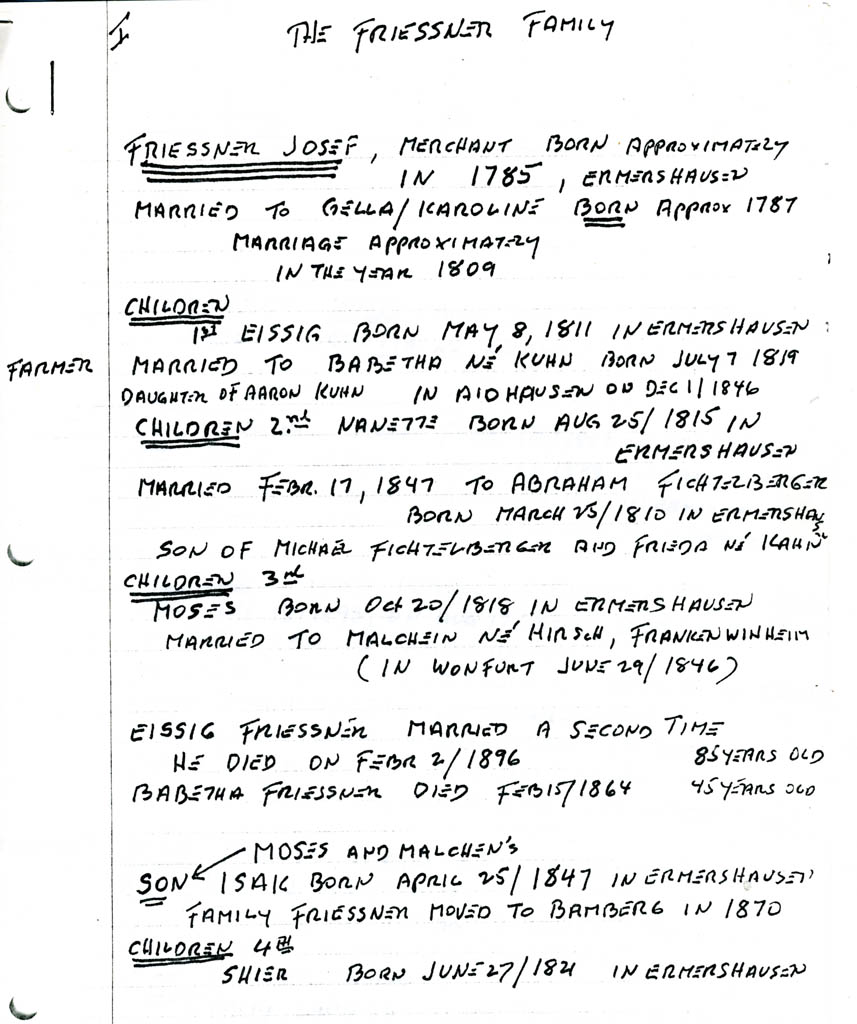 I
THE FRIESSNER FAMILY
FRIESSNER JOSEF, MERCHANT BORN APPROXIMATELY
IN 1785, ERMERSHAUSEN
MARRIED TO GELLA/KAROLINE BORN APPROX 1787
MARRIAGE APPROXIMATELY
IN THE YEAR 1809
CHILDREN
1ST EISSIG BORN MAY, 8, 1811 IN ERMERSHAUSEN
FARMER MARRIED TO BABETHA NÉ KUHN BORN JULY 7 1819
DAUGHTER OF AARON KUHN IN AIDHAUSEN ON DEC 1/1846
CHILDREN 2.nd NANETTE BORN AUG 25/1815 IN
ERMERSHAUSEN
MARRIED FEBR. 17, 1847 TO ABRAHAM FICHTELBERGER
BORN MARCH 25/1810 IN ERMERSHAUS
SON OF MICHAEL FICHTELBERGER AND FRIEDA NÉ KAHN
CHILDREN 3rd
MOSES BORN Oct 20/1818 IN ERMERSHAUSEN
MARRIED TO MALCHEIN NÉ HIRSCH, FRANKENWINHEIM
(IN WONFURT JUNE 29/1846)
EISSIG FRIESSNER MARRIED A SECOND TIME
HE DIED ON FEBR 2/1896 85 YEARS OLD
BABETHA FRIESSNER DIED FEB 15/1864 45 YEARS OLD
MOSES AND MALCHEN'S
SON ISAK BORN APRIL 25/1847 IN ERMERSHAUSEN
FAMILY FRIESSNER MOVED TO BAMBERG IN 1870
CHILDREN 4TH
SHIER BORN JUNE 27/1821 IN ERMERSHAUSEN